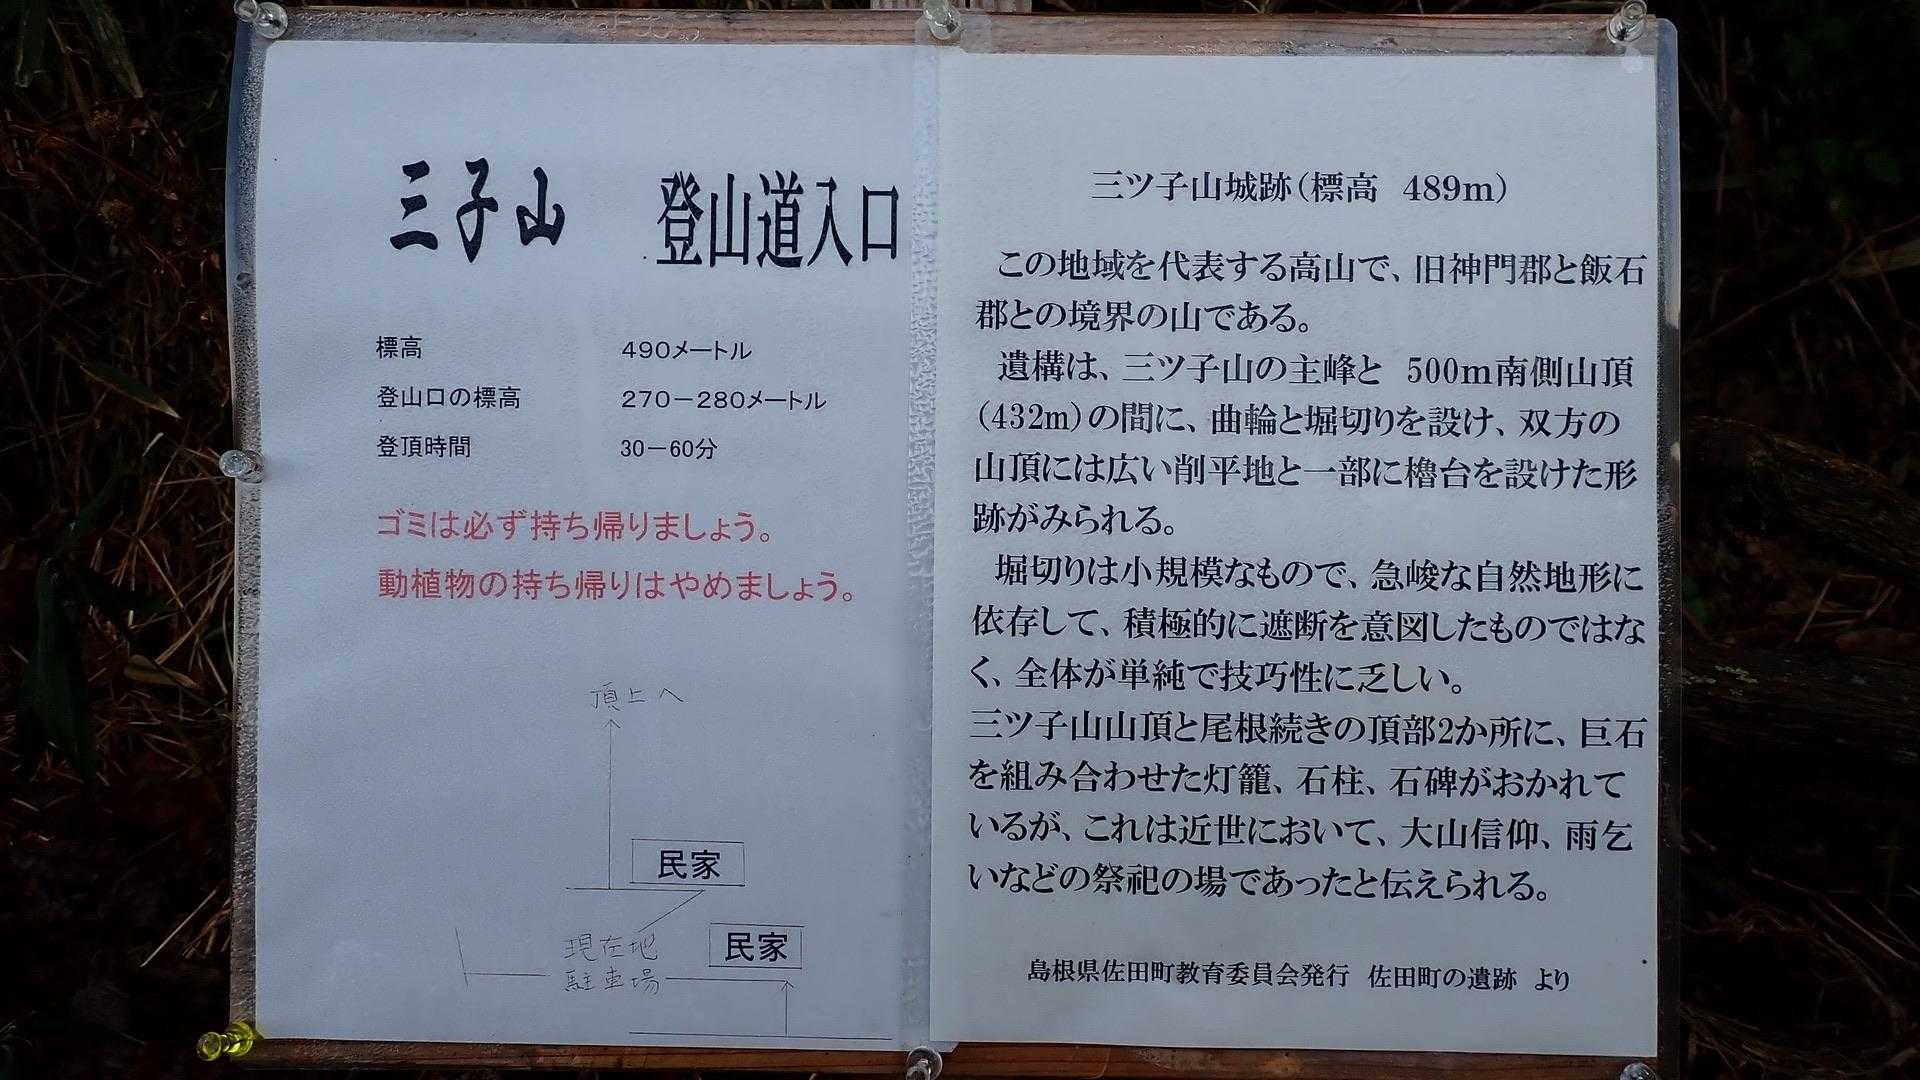 三子山　登山道入口
標高　490メートル
登山口の標高　270－280メートル
登頂時間　30－60分
ゴミは必ず持ち帰りましょう。
動植物の持ち帰りはやめましょう。
頂上へ
民家
民家
現在地
駐車場
三ツ子山城跡（標高　489m）
この地域を代表する高山で、旧神門郡と飯石
郡との境界の山である。
遺構は、三ツ子山の主峰と　500m南側山頂
（432m）の間に、曲輪と堀切りを設け、双方の
山頂には広い削平地と一部に櫓台を設けた形
跡がみられる。
堀切りは小規模なもので、急峻な自然地形に
依存して、積極的に遮断を意図したものではな
く、全体が単純で技巧性に乏しい。
三ツ子山山頂と尾根続きの頂部2か所に、巨石
を組み合わせた灯籠、石柱、石碑がおかれて
いるが、これは近世において、大山信仰、雨乞
いなどの祭祀の場であったと伝えられる。
島根県佐田町教育委員会発行　佐田町の遺跡　より